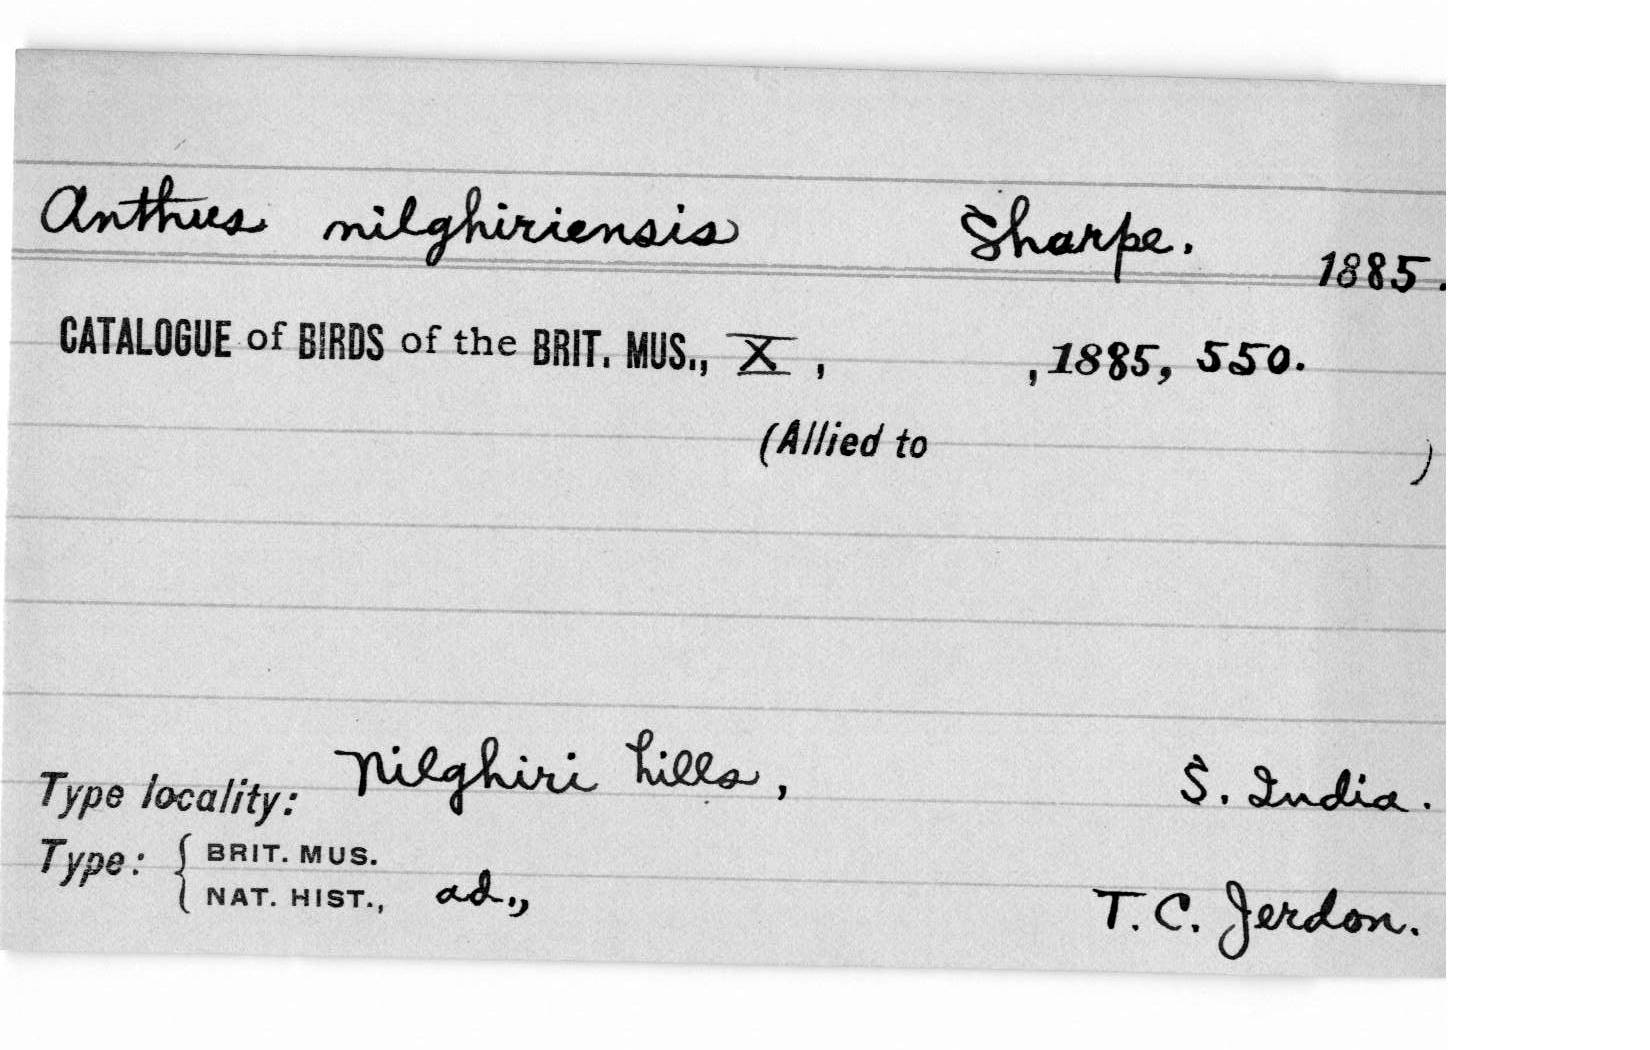 Anthus nilghiriensis Sharpe. 1885.
CATALOGUE of BIRDS of the BRIT. MUS., X, , 1885, 550.
(Allied to )
Type locality: Nilghiri hills, S. India.
Type: { BRIT. MUS.
NAT. HIST., ad., T. C. Jerdon.